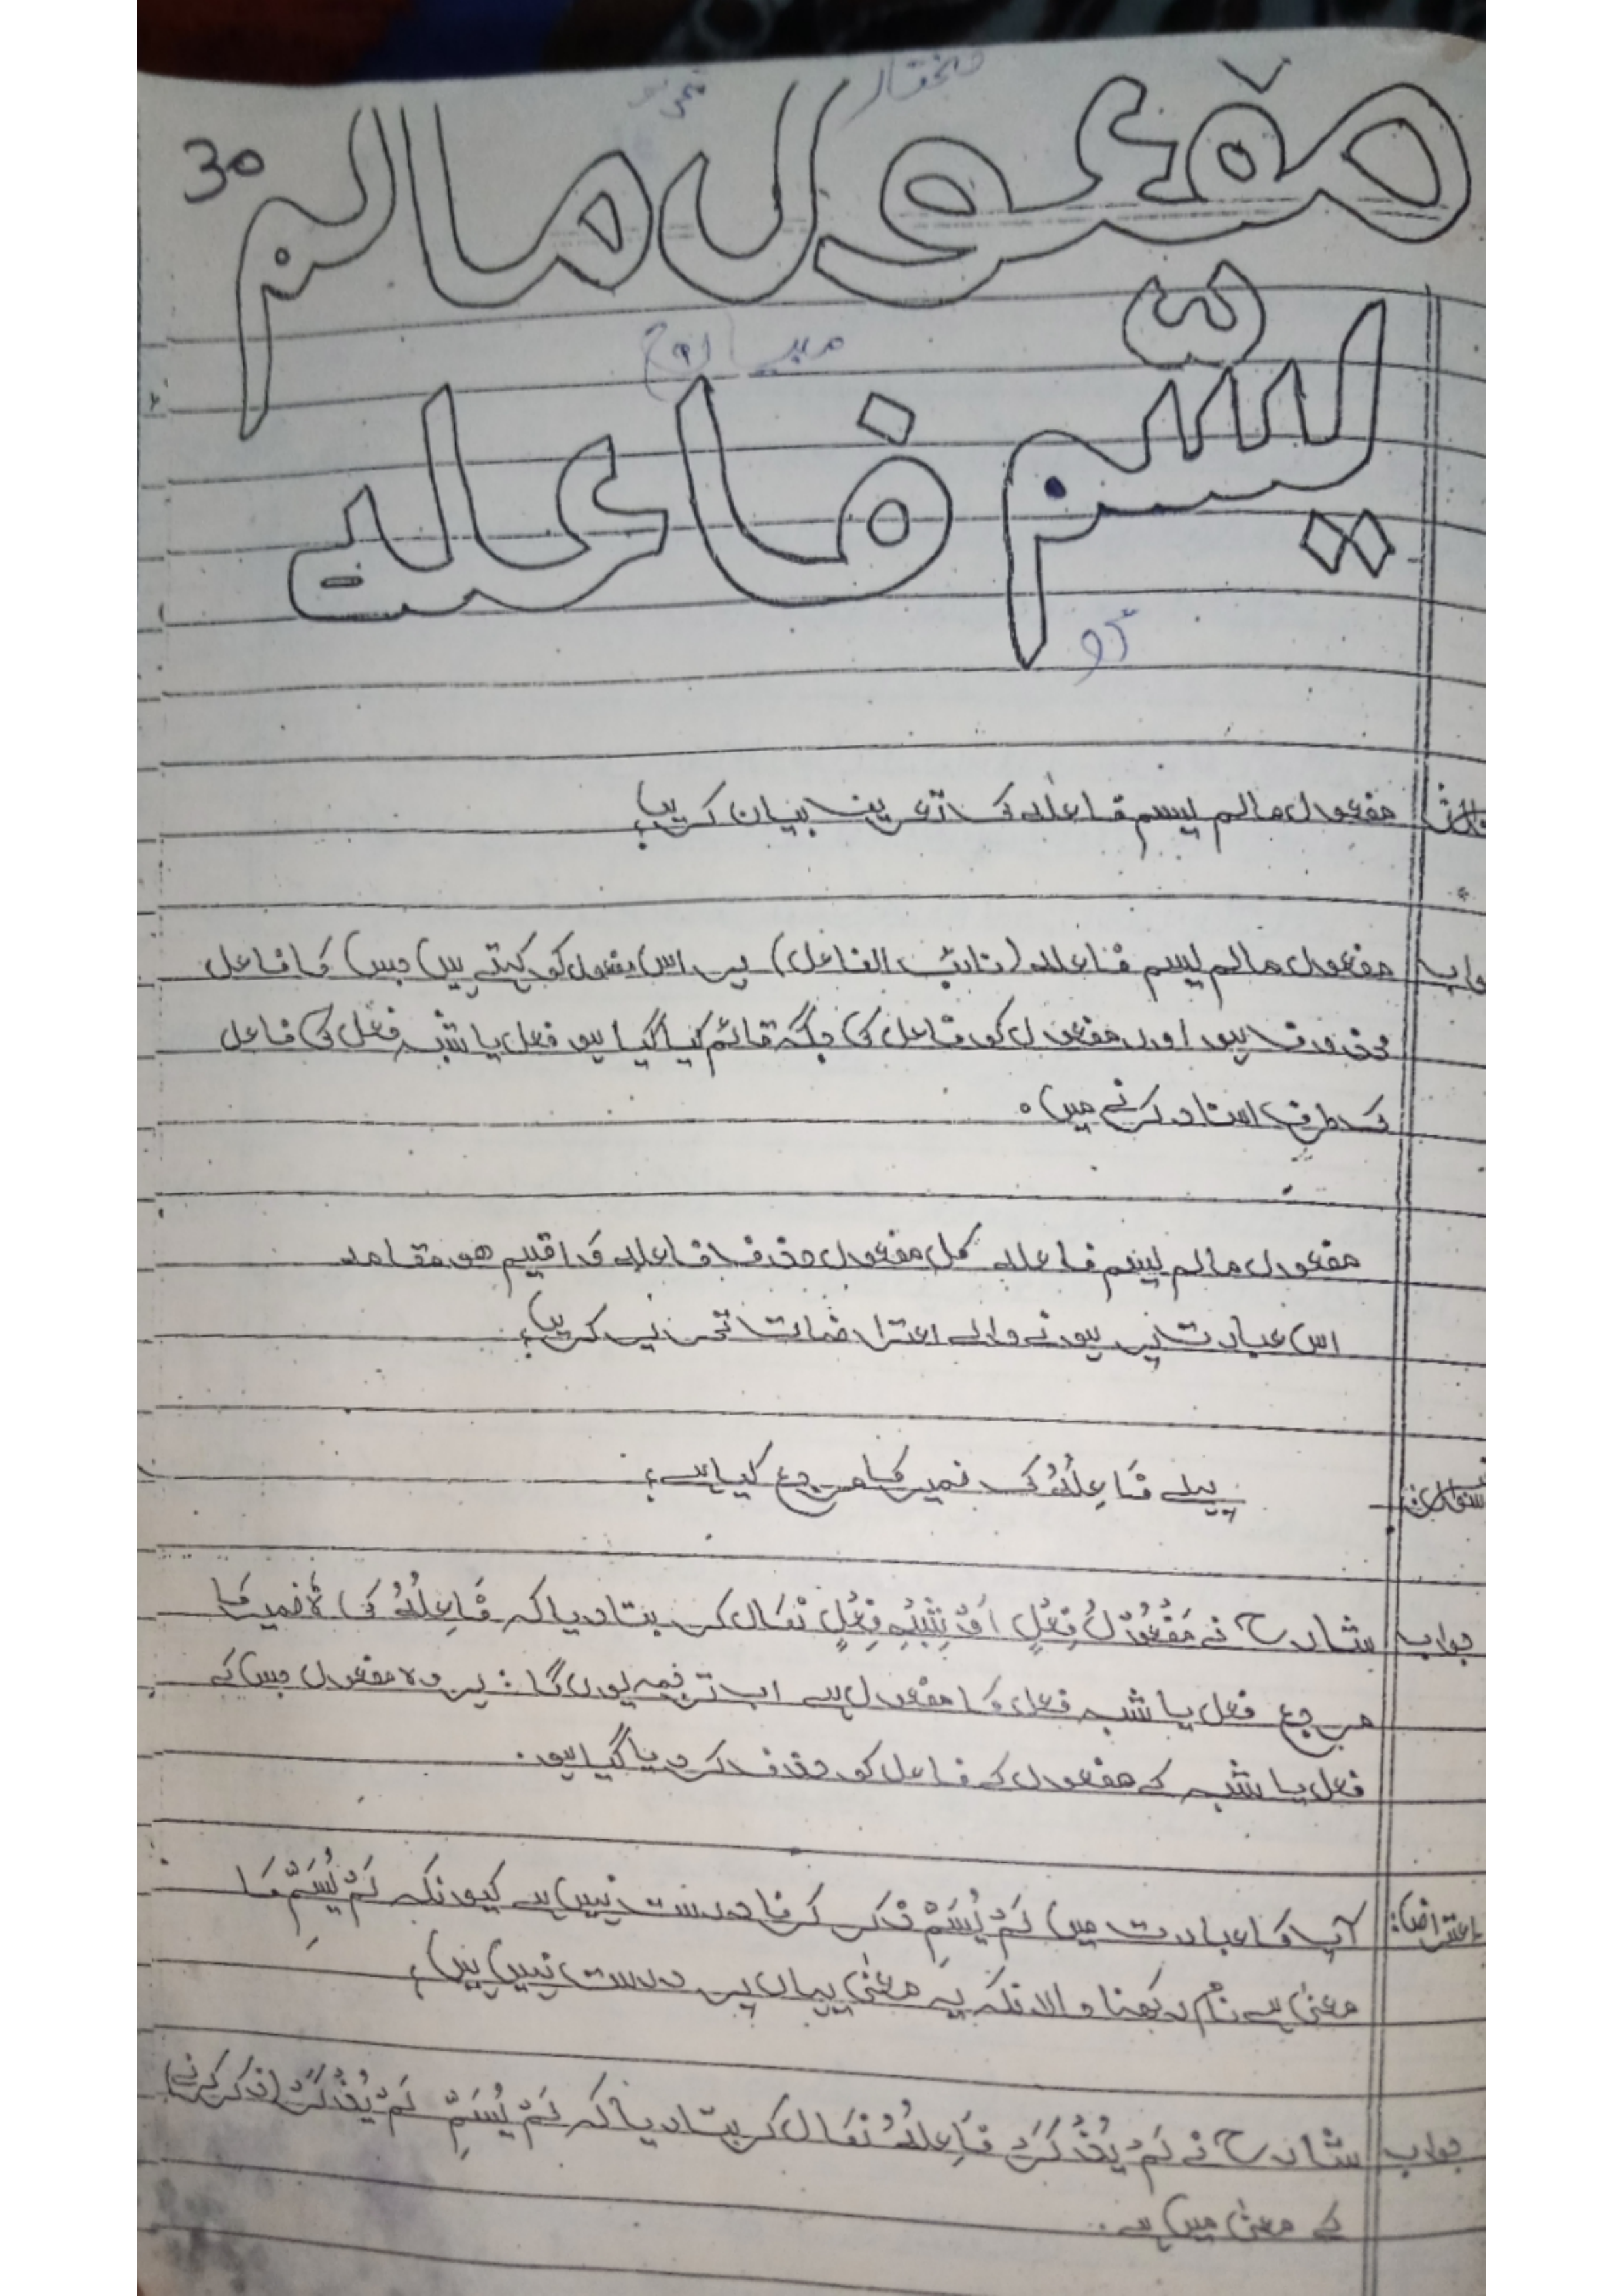 30
مفعول مالم
یسّم فاعلہ
مفعول مالم یسم فاعلہ کی تعریف بیان کریں؟
جواب مفعول مالم یسم فاعلہ (نائب الفاعل) ہر اس مفعول کو کہتے ہیں جس کا فاعل
محذوف ہو اور مفعول کو فاعل کی جگہ قائم کیا گیا ہو فعل یا شبہ فعل کی فاعل
کی طرف اسناد کرنے میں۔
مفعول مالم یسم فاعلہ کل مفعول حذف فاعلہ و اقیم ھو مقامہ
اس عبارت پر ہونے والے اعتراضات تحریر کریں؟
سوال: پہلے فَاعِلُہُ کی ضمیر کا مرجع کیا ہے؟
جواب شارح نے مَفْعُوْلُ فِعْلٍ اَوْ شِبْہِ فِعْلٍ نکال کر بتا دیا کہ فَاعِلُہُ کی ہٗ ضمیر کا
مرجع فعل یا شبہ فعل کا مفعول ہے اب ترجمہ یوں ہوگا: ہر وہ مفعول جس کے
فعل یا شبہ کے مفعول کے فاعل کو حذف کر دیا گیا ہو۔
اعتراض: آپ کا عبارت میں لَمْ یُسَمَّ ذکر کرنا درست نہیں ہے کیونکہ لَمْ یُسَمِّ کا
معنیٰ ہے نام رکھنا حالانکہ یہ معنیٰ یہاں پر درست نہیں ہیں؟
جواب شارح نے لَمْ یُذْکَرْ فَاعِلُہُ نکال کر بتا دیا کہ لَمْ یُسَمِّ لَمْ یُذْکَرْ (ذکر کرنے)
کے معنیٰ میں ہے۔